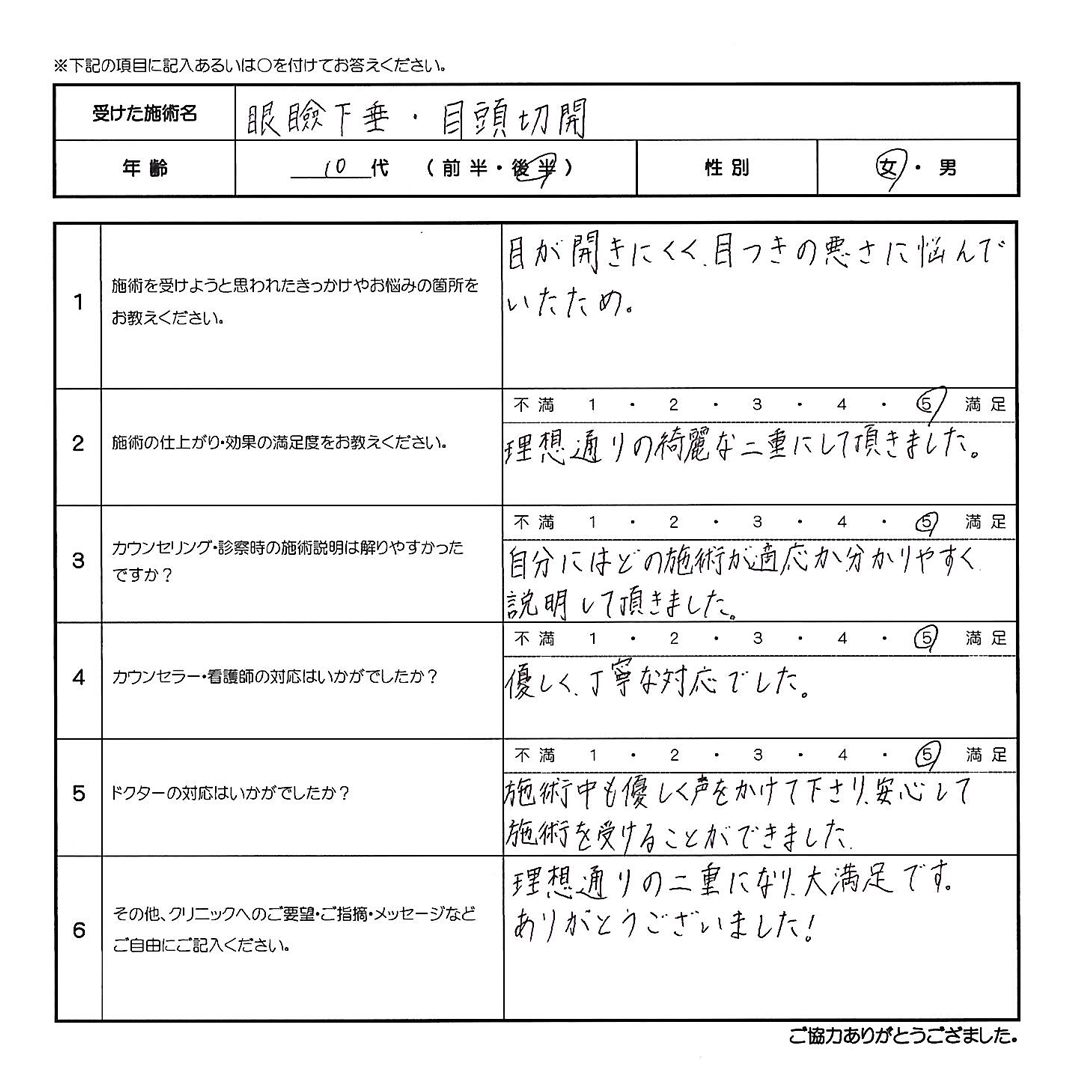 ※下記の項目に記入あるいは○を付けてお答えください。
受けた施術名 眼瞼下垂・目頭切開
年齢 10代 (前半・後半) 性別 女・男
1 施術を受けようと思われたきっかけやお悩みの箇所を
お教えください。
目が開きにくく、目つきの悪さに悩んで
いたため。
2 施術の仕上がり・効果の満足度をお教えください。
不満 1 ・ 2 ・ 3 ・ 4 ・ 5 満足
理想通りの綺麗な二重にして頂きました。
3 カウンセリング・診察時の施術説明は解りやすかった
ですか？
不満 1 ・ 2 ・ 3 ・ 4 ・ 5 満足
自分にはどの施術が適応か分かりやすく
説明して頂きました。
4 カウンセラー・看護師の対応はいかがでしたか？
不満 1 ・ 2 ・ 3 ・ 4 ・ 5 満足
優しく、丁寧な対応でした。
5 ドクターの対応はいかがでしたか？
不満 1 ・ 2 ・ 3 ・ 4 ・ 5 満足
施術中も優しく声をかけて下さり、安心して
施術を受けることができました.
6 その他、クリニックへのご要望・ご指摘・メッセージなど
ご自由にご記入ください。
理想通りの二重になり、大満足です。
ありがとうございました!
ご協力ありがとうござました。